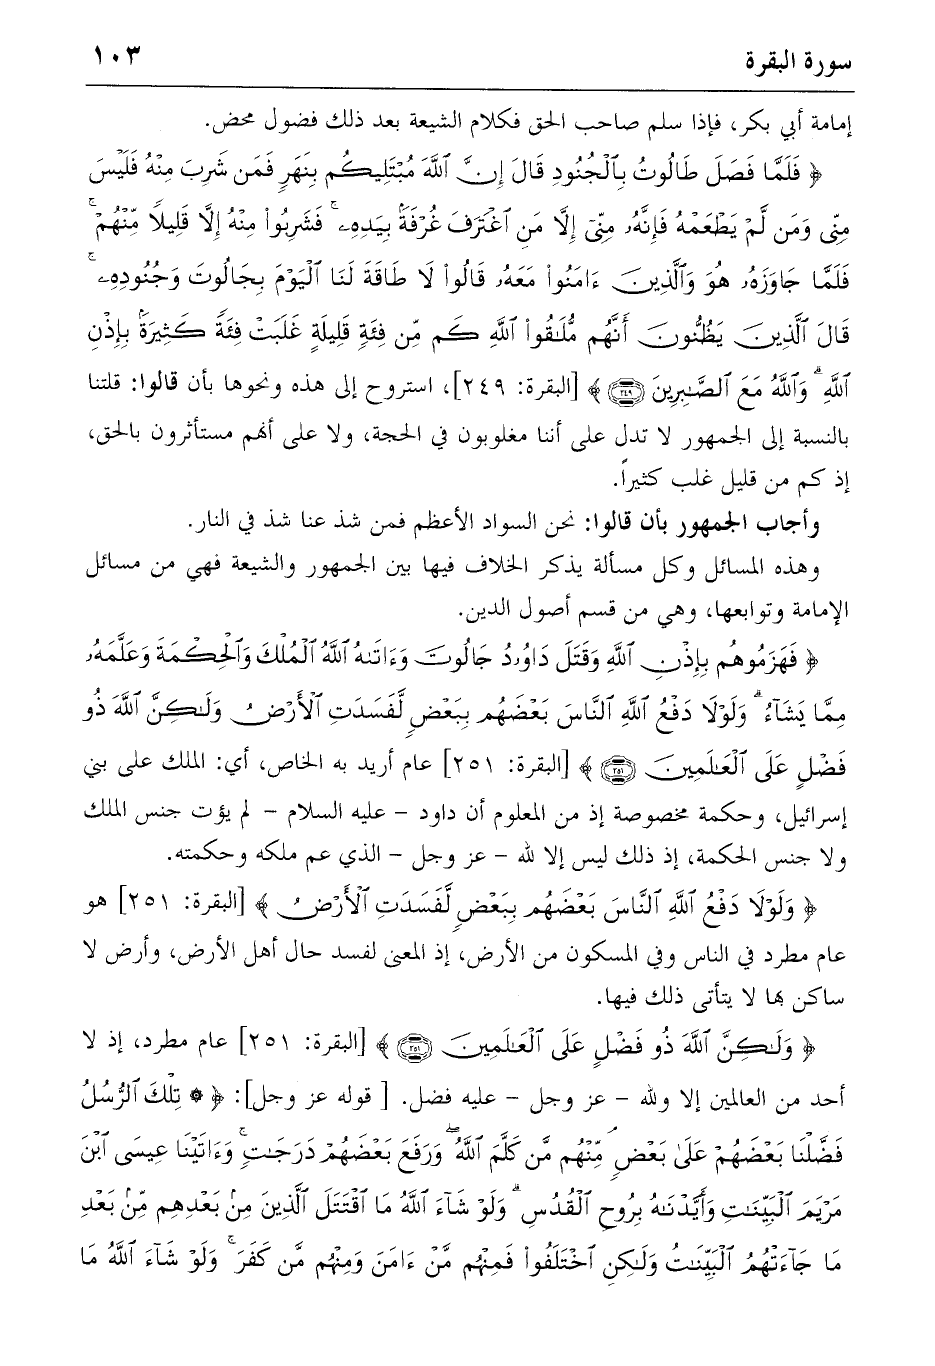 سورة البقرة ١٠٣
إمامة أبي بكر، فإذا سلم صاحب الحق فكلام الشيعة بعد ذلك فضول محض.
﴿ فَلَمَّا فَصَلَ طَالُوتُ بِٱلْجُنُودِ قَالَ إِنَّ ٱللَّهَ مُبْتَلِيكُم بِنَهَرٍ فَمَن شَرِبَ مِنْهُ فَلَيْسَ
مِنِّى وَمَن لَّمْ يَطْعَمْهُ فَإِنَّهُۥ مِنِّىٓ إِلَّا مَنِ ٱغْتَرَفَ غُرْفَةًۢ بِيَدِهِۦ ۚ فَشَرِبُوا۟ مِنْهُ إِلَّا قَلِيلًا مِّنْهُمْ ۚ
فَلَمَّا جَاوَزَهُۥ هُوَ وَٱلَّذِينَ ءَامَنُوا۟ مَعَهُۥ قَالُوا۟ لَا طَاقَةَ لَنَا ٱلْيَوْمَ بِجَالُوتَ وَجُنُودِهِۦ ۚ
قَالَ ٱلَّذِينَ يَظُنُّونَ أَنَّهُم مُّلَٰقُوا۟ ٱللَّهِ كَم مِّن فِئَةٍ قَلِيلَةٍ غَلَبَتْ فِئَةً كَثِيرَةًۢ بِإِذْنِ
ٱللَّهِ ۗ وَٱللَّهُ مَعَ ٱلصَّٰبِرِينَ ٢٤٩ ﴾ [البقرة: ٢٤٩]، استروح إلى هذه ونحوها بأن قالوا: قلتنا
بالنسبة إلى الجمهور لا تدل على أننا مغلوبون في الحجة، ولا على أنهم مستأثرون بالحق،
إذ كم من قليل غلب كثيراً.
وأجاب الجمهور بأن قالوا: نحن السواد الأعظم فمن شذ عنا شذ في النار.
وهذه المسائل وكل مسألة يذكر الخلاف فيها بين الجمهور والشيعة فهي من مسائل
الإمامة وتوابعها، وهي من قسم أصول الدين.
﴿ فَهَزَمُوهُم بِإِذْنِ ٱللَّهِ وَقَتَلَ دَاوُۥدُ جَالُوتَ وَءَاتَىٰهُ ٱللَّهُ ٱلْمُلْكَ وَٱلْحِكْمَةَ وَعَلَّمَهُۥ
مِمَّا يَشَآءُ ۗ وَلَوْلَا دَفْعُ ٱللَّهِ ٱلنَّاسَ بَعْضَهُم بِبَعْضٍ لَّفَسَدَتِ ٱلْأَرْضُ وَلَٰكِنَّ ٱللَّهَ ذُو
فَضْلٍ عَلَى ٱلْعَٰلَمِينَ ٢٥١ ﴾ [البقرة: ٢٥١] عام أريد به الخاص، أي: الملك على بني
إسرائيل، وحكمة مخصوصة إذ من المعلوم أن داود – عليه السلام – لم يؤت جنس الملك
ولا جنس الحكمة، إذ ذلك ليس إلا لله – عز وجل – الذي عم ملكه وحكمته.
﴿ وَلَوْلَا دَفْعُ ٱللَّهِ ٱلنَّاسَ بَعْضَهُم بِبَعْضٍ لَّفَسَدَتِ ٱلْأَرْضُ ﴾ [البقرة: ٢٥١] هو
عام مطرد في الناس وفي المسكون من الأرض، إذ المعنى لفسد حال أهل الأرض، وأرض لا
ساكن بها لا يتأتى ذلك فيها.
﴿ وَلَٰكِنَّ ٱللَّهَ ذُو فَضْلٍ عَلَى ٱلْعَٰلَمِينَ ٢٥١ ﴾ [البقرة: ٢٥١] عام مطرد، إذ لا
أحد من العالمين إلا ولله – عز وجل – عليه فضل. [ قوله عز وجل]: ﴿ ۞ تِلْكَ ٱلرُّسُلُ
فَضَّلْنَا بَعْضَهُمْ عَلَىٰ بَعْضٍ ۘ مِّنْهُم مَّن كَلَّمَ ٱللَّهُ ۖ وَرَفَعَ بَعْضَهُمْ دَرَجَٰتٍ ۚ وَءَاتَيْنَا عِيسَى ٱبْنَ
مَرْيَمَ ٱلْبَيِّنَٰتِ وَأَيَّدْنَٰهُ بِرُوحِ ٱلْقُدُسِ ۗ وَلَوْ شَآءَ ٱللَّهُ مَا ٱقْتَتَلَ ٱلَّذِينَ مِنۢ بَعْدِهِم مِّنۢ بَعْدِ
مَا جَآءَتْهُمُ ٱلْبَيِّنَٰتُ وَلَٰكِنِ ٱخْتَلَفُوا۟ فَمِنْهُم مَّنْ ءَامَنَ وَمِنْهُم مَّن كَفَرَ ۚ وَلَوْ شَآءَ ٱللَّهُ مَا